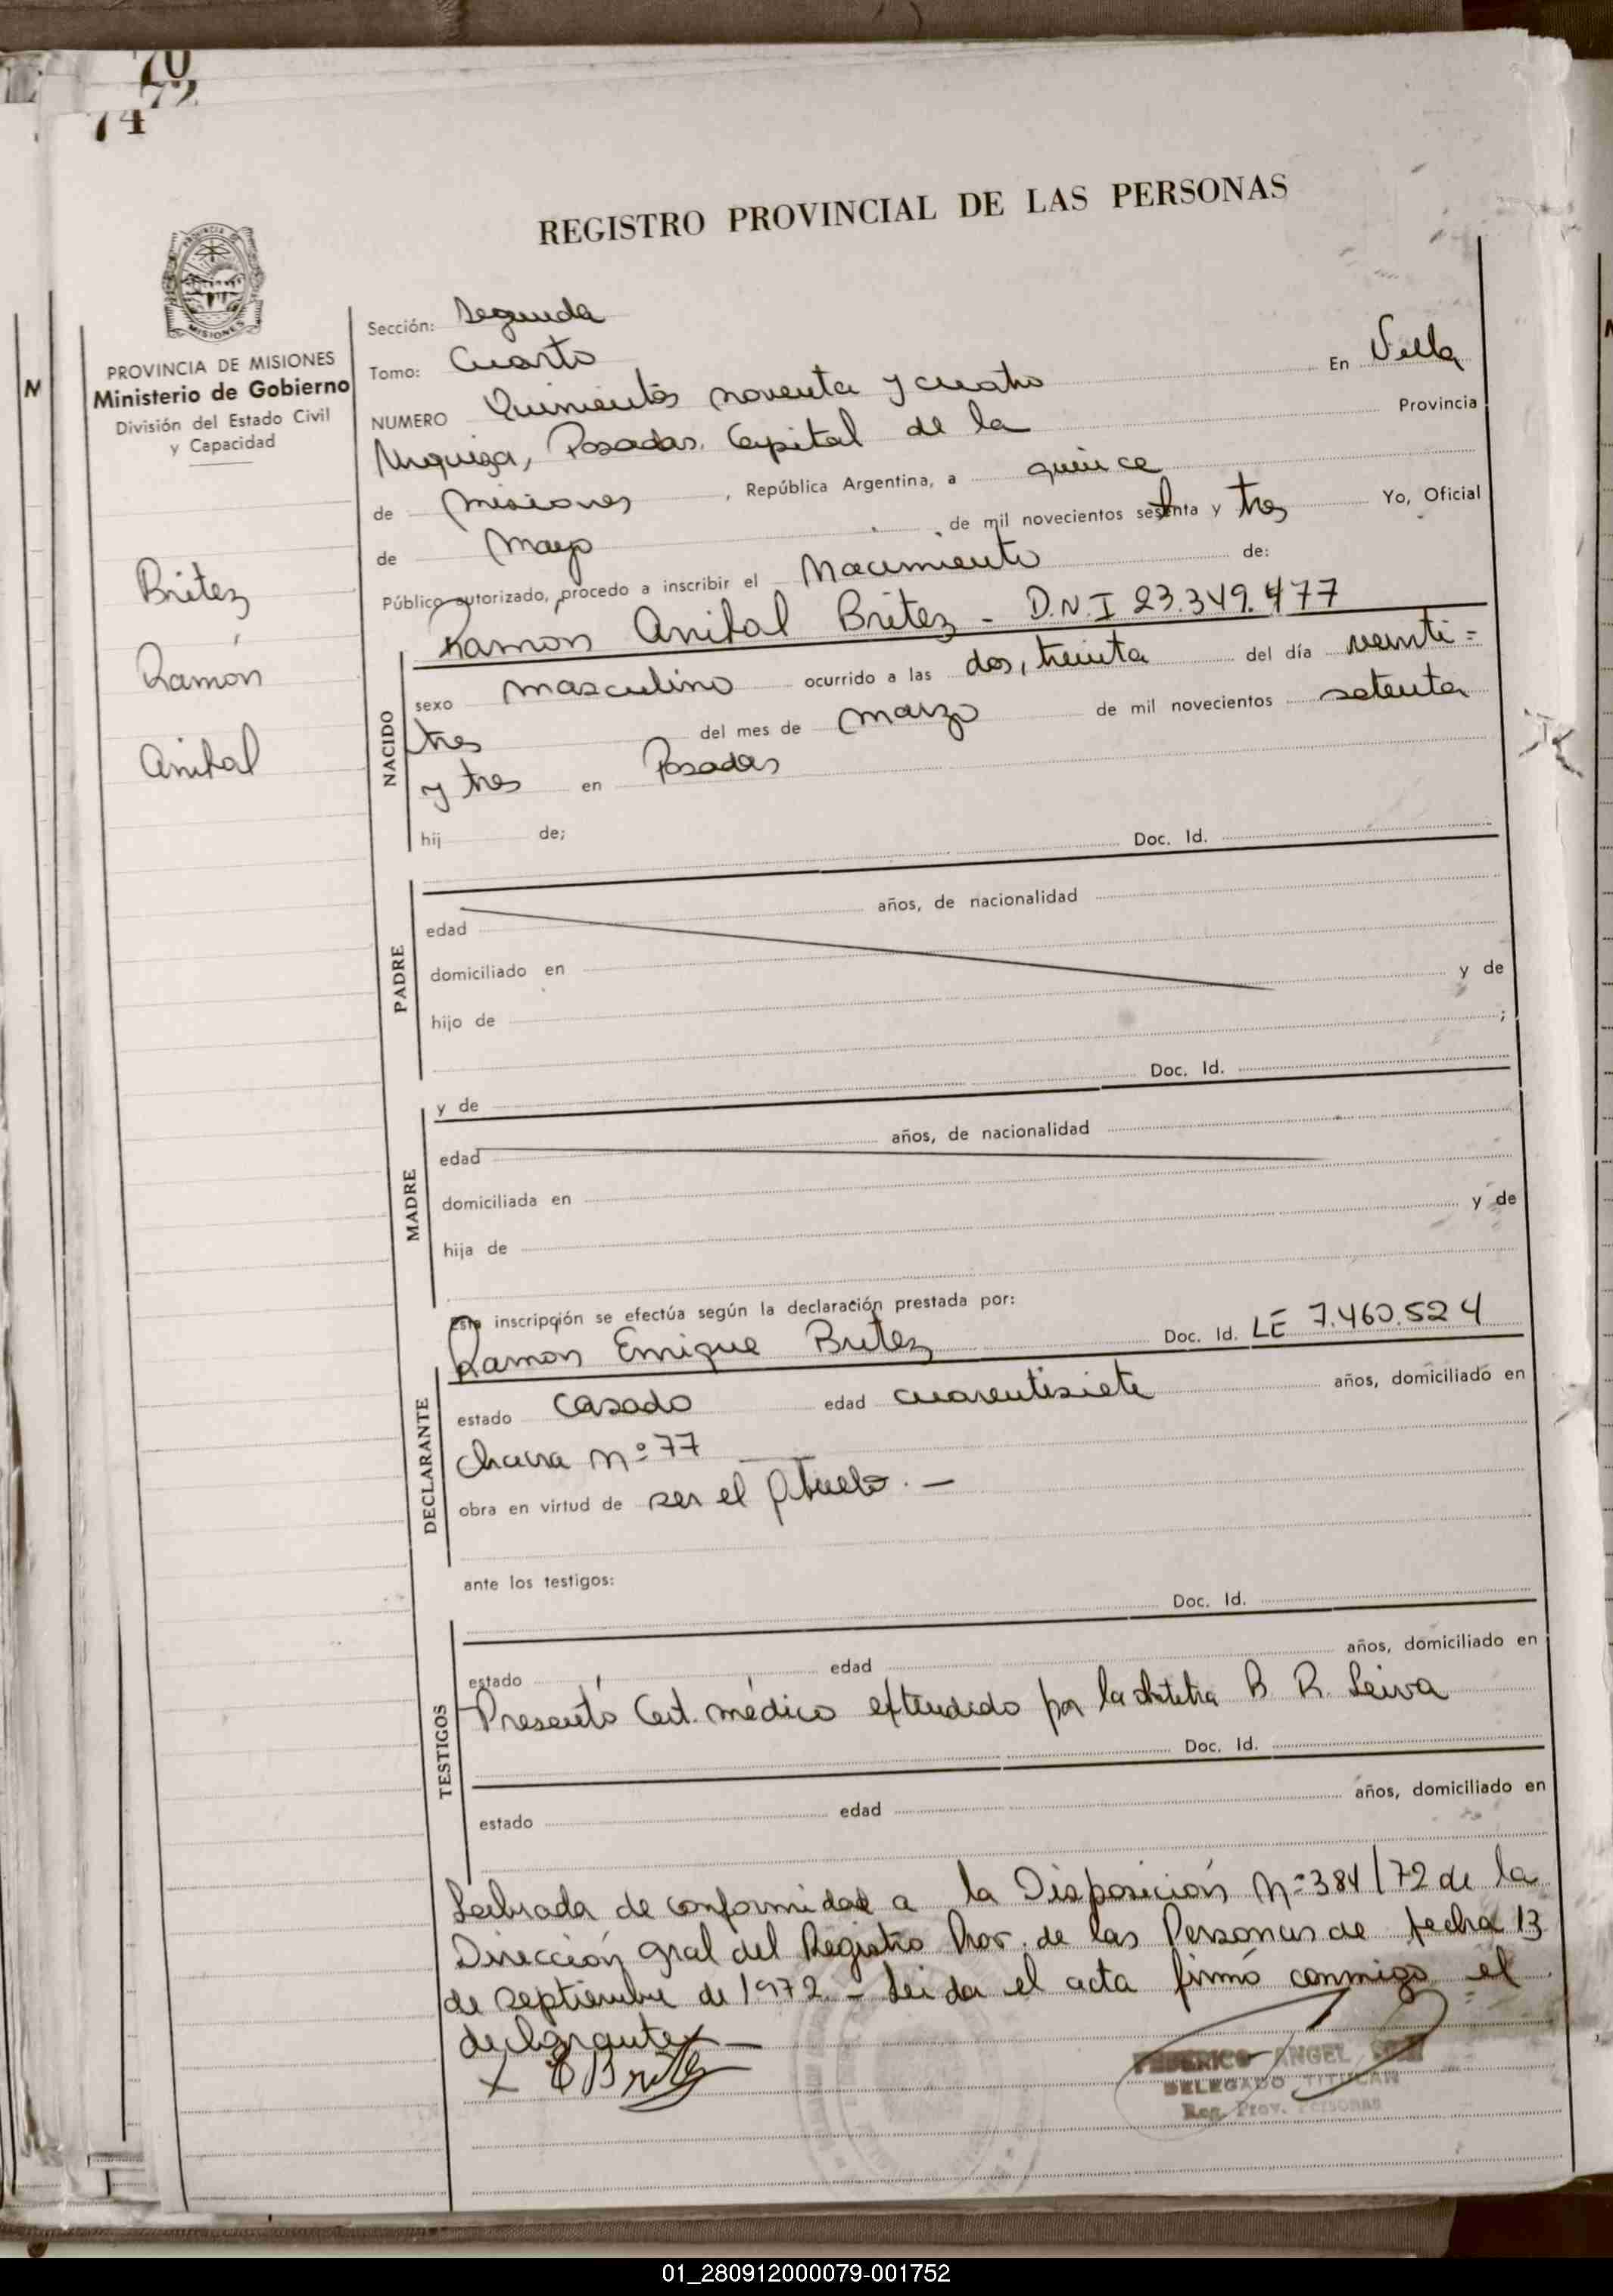 70
72
74
REGISTRO PROVINCIAL DE LAS PERSONAS
PROVINCIA DE MISIONES
MISIONES
PROVINCIA DE MISIONES
Ministerio de Gobierno
División del Estado Civil
y Capacidad
Britez
Ramón
Anibal
Sección: Segunda
Tomo: Cuarto
NUMERO Quinientos noventa y cuatro En Villa
Urquiza, Posadas, Capital de la Provincia
de Misiones, República Argentina, a quince
de Mayo de mil novecientos setenta y tres Yo, Oficial
Público autorizado, procedo a inscribir el Nacimiento de:
Ramón Anibal Britez - D.N.I 23.349.477
NACIDO
sexo masculino ocurrido a las dos, treinta del día veinti =
tres del mes de marzo de mil novecientos setenta
y tres en Posadas
hij de;
Doc. Id.
PADRE
edad años, de nacionalidad
domiciliado en
hijo de y de
;
y de Doc. Id.
MADRE
edad años, de nacionalidad
domiciliada en
hija de y de
Esta inscripción se efectúa según la declaración prestada por:
Ramon Enrique Britez Doc. Id. LE 7.460.524
DECLARANTE
estado casado edad cuarentisiete años, domiciliado en
chacra nº 77
obra en virtud de ser el Abuelo. —
ante los testigos:
Doc. Id.
TESTIGOS
estado edad años, domiciliado en
Presentó Cert. médico extendido por la obstetra B R. Leiva
Doc. Id.
estado edad años, domiciliado en
Labrada de conformidad a la Disposición Nº 384/72 de la
Dirección gral del Registro Prov. de las Personas de fecha 13
de septiembre de 1972. - Leida el acta firmó conmigo el
declarante
x E Britez
FEDERICO ANGEL
DELEGADO TITULAR
Reg. Prov. Personas
01_280912000079-001752